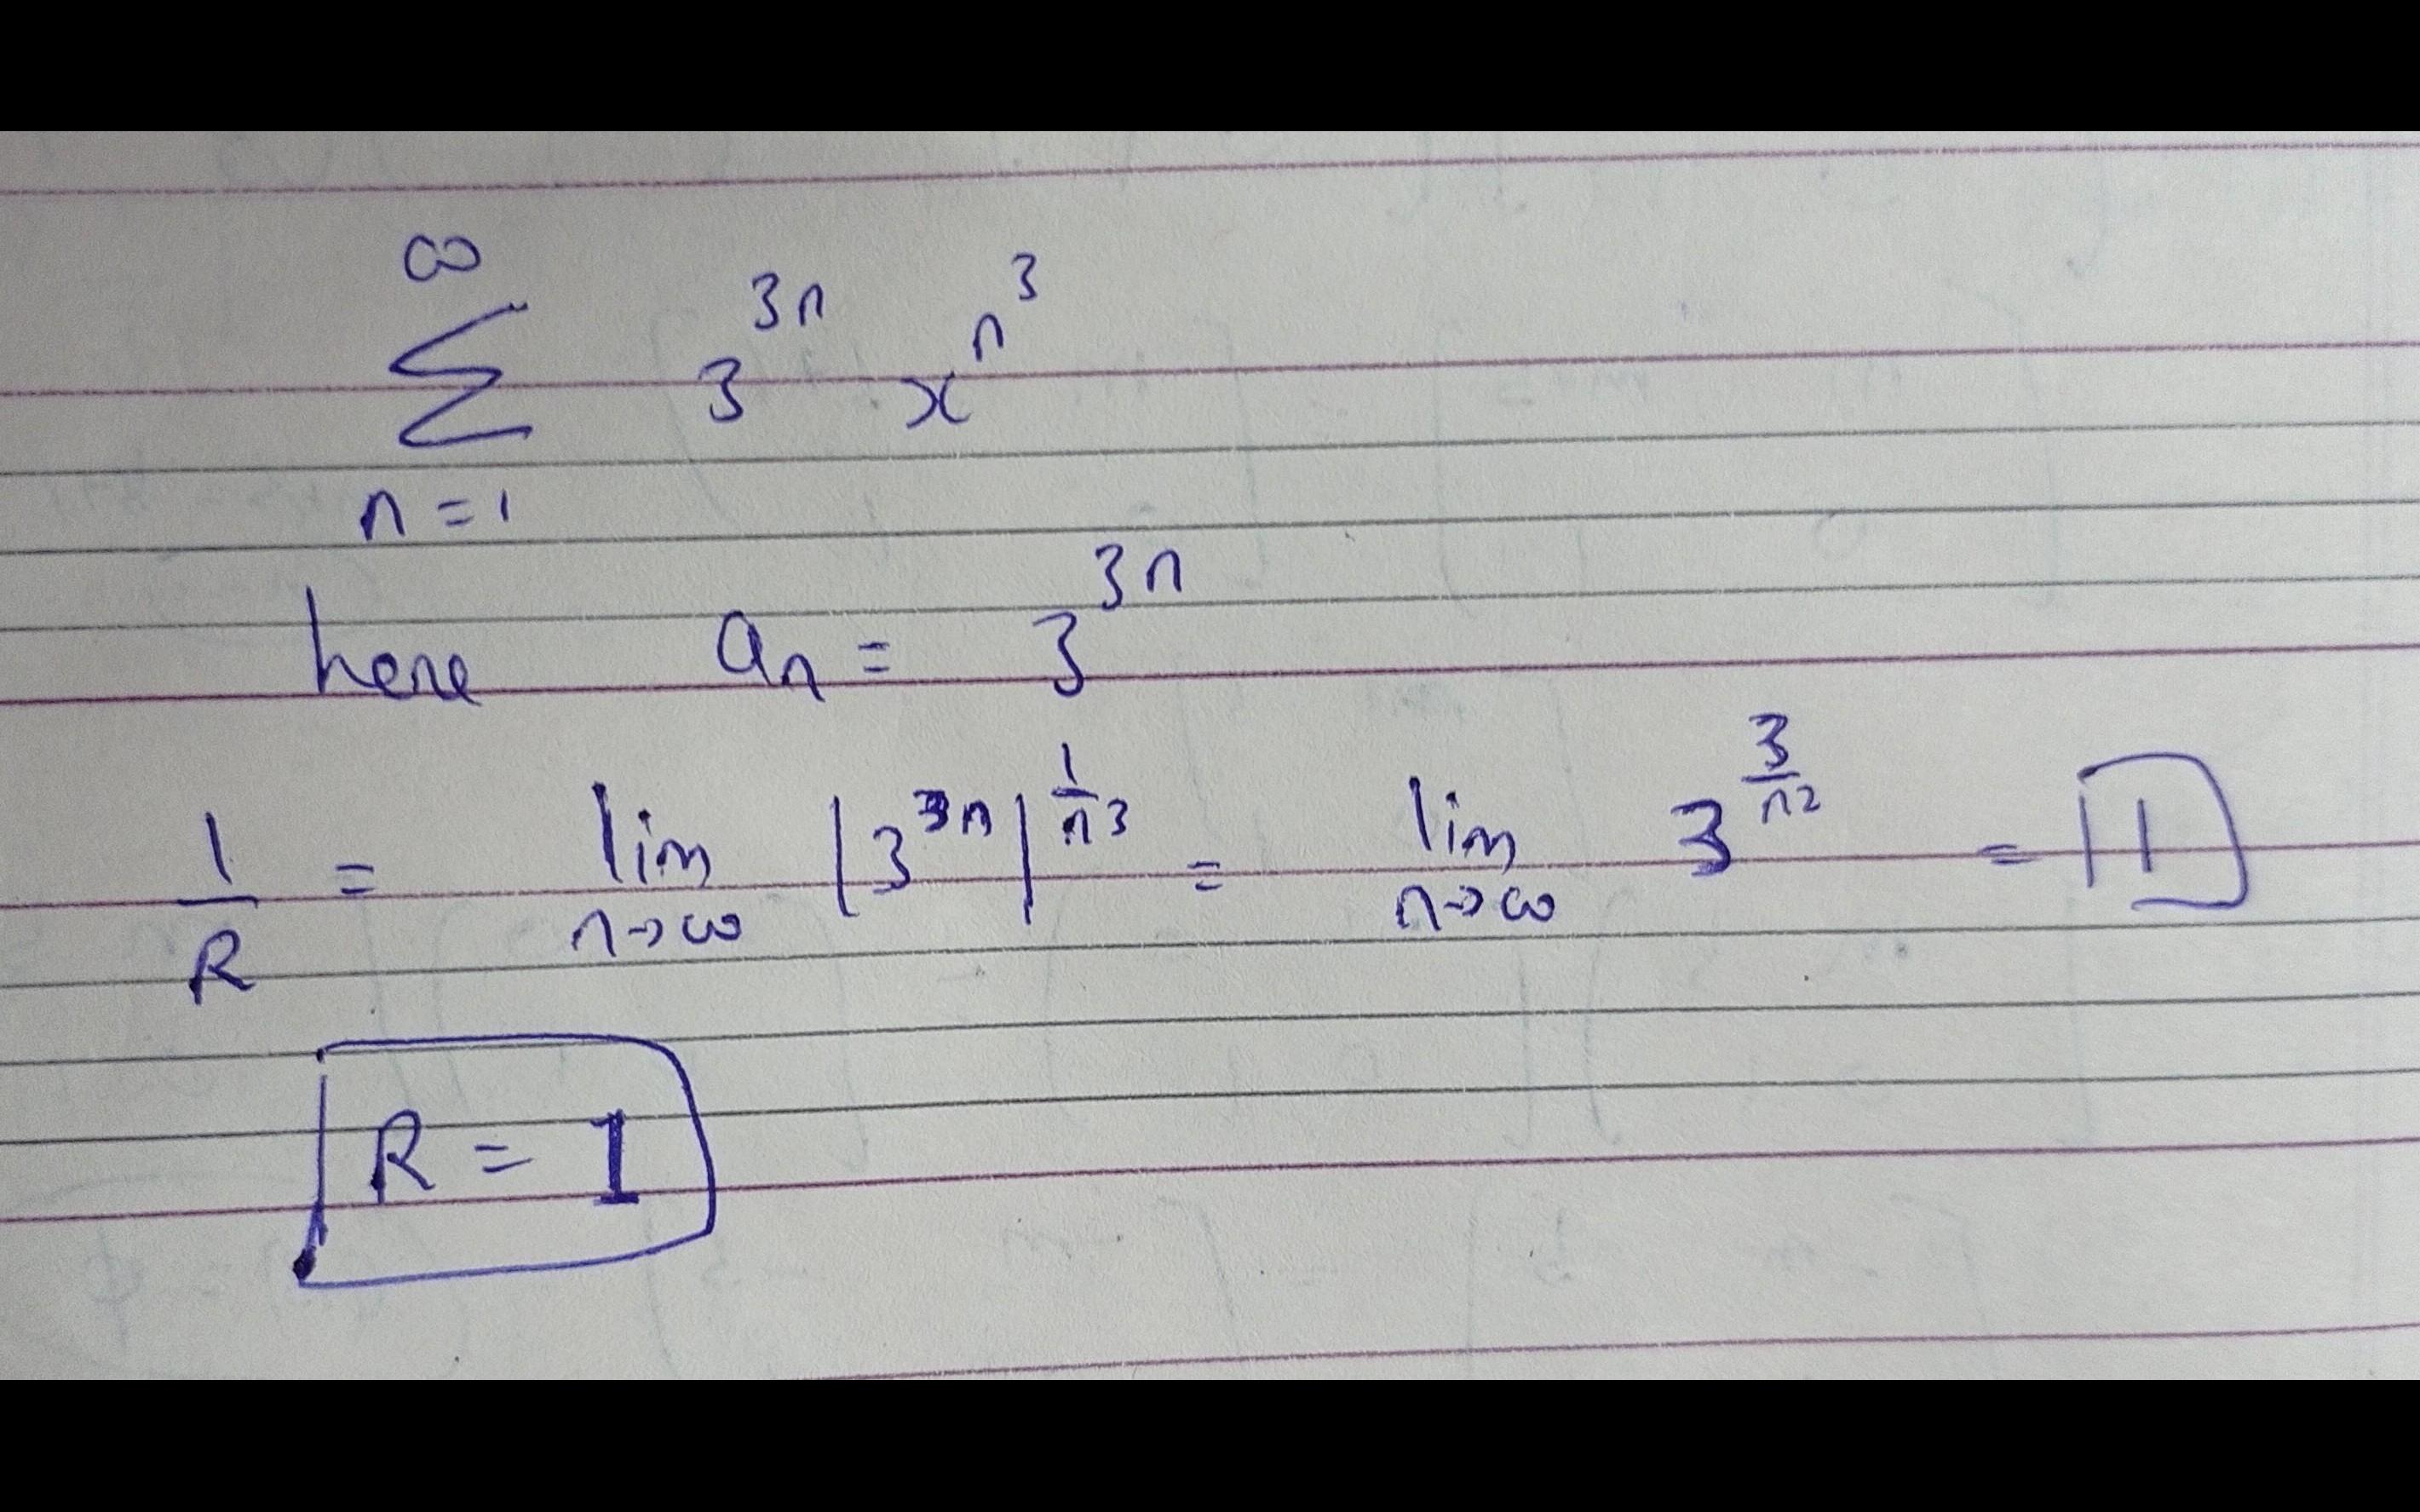 ∞
∑ 3^{3n} x^{n^3}
n=1
here a_n = 3^{3n}
1/R = lim_{n→∞} |3^{3n}|^{1/n^3} = lim_{n→∞} 3^{3/n^2} = 1
R = 1